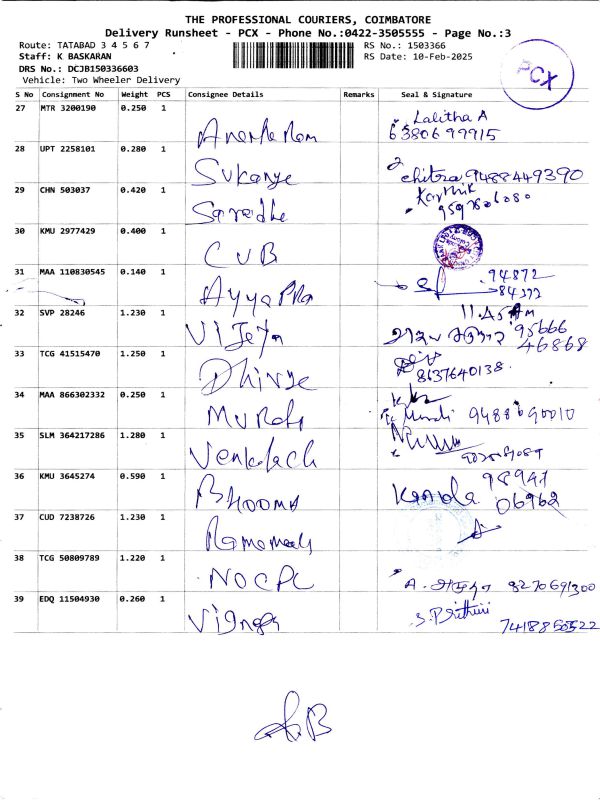 THE PROFESSIONAL COURIERS, COIMBATORE
Delivery Runsheet - PCX - Phone No.:0422-3505555 - Page No.:3
Route: TATABAD 3 4 5 6 7
RS No.: 1503366
Staff: K BASKARAN
RS Date: 10-Feb-2025
DRS No.: DCJB150336603
Vehicle: Two Wheeler Delivery
PCX
S No Consignment No Weight PCS Consignee Details Remarks Seal & Signature
27 MTR 3200190 0.250 1 Lalitha A
6380699915
28 UPT 2258101 0.280 1 Sukanye chitra 9488449390
29 CHN 503037 0.420 1 Saradhe Karthik
30 KMU 2977429 0.400 1 CUB
31 MAA 110830545 0.140 1 Ayyappa 94872
84372
32 SVP 28246 1.230 1 Vijeya 11.45 Am
95666
46868
33 TCG 41515470 1.250 1 Dhivye
8637640138
34 MAA 866302332 0.250 1 Murali 9488090010
35 SLM 364217286 1.280 1 Venkatach
36 KMU 3645274 0.590 1 Bhooma Kamala 98941
06962
37 CUD 7238726 1.230 1
38 TCG 50809789 1.220 1 NOCPL A. 8270691300
39 EDQ 11504930 0.260 1 Vignes S. Prithivi
7418850522